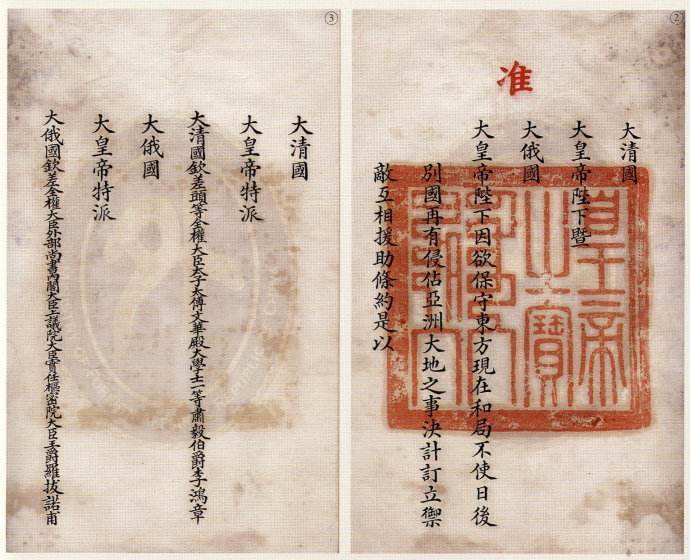 ②
准
大清國
大皇帝陛下暨
大俄國
大皇帝陛下因欲保守東方現在和局不使日後
別國再有侵佔亞洲大地之事決計訂立禦
敵互相援助條約是以
皇帝之寶
③
大清國
大皇帝特派
大清國欽差頭等全權大臣太子太傅文華殿大學士一等肅毅伯爵李鴻章
大俄國
大皇帝特派
大俄國欽差全權大臣外部尚書內閣大臣上議院大臣實任樞密院大臣王爵羅拔諾甫